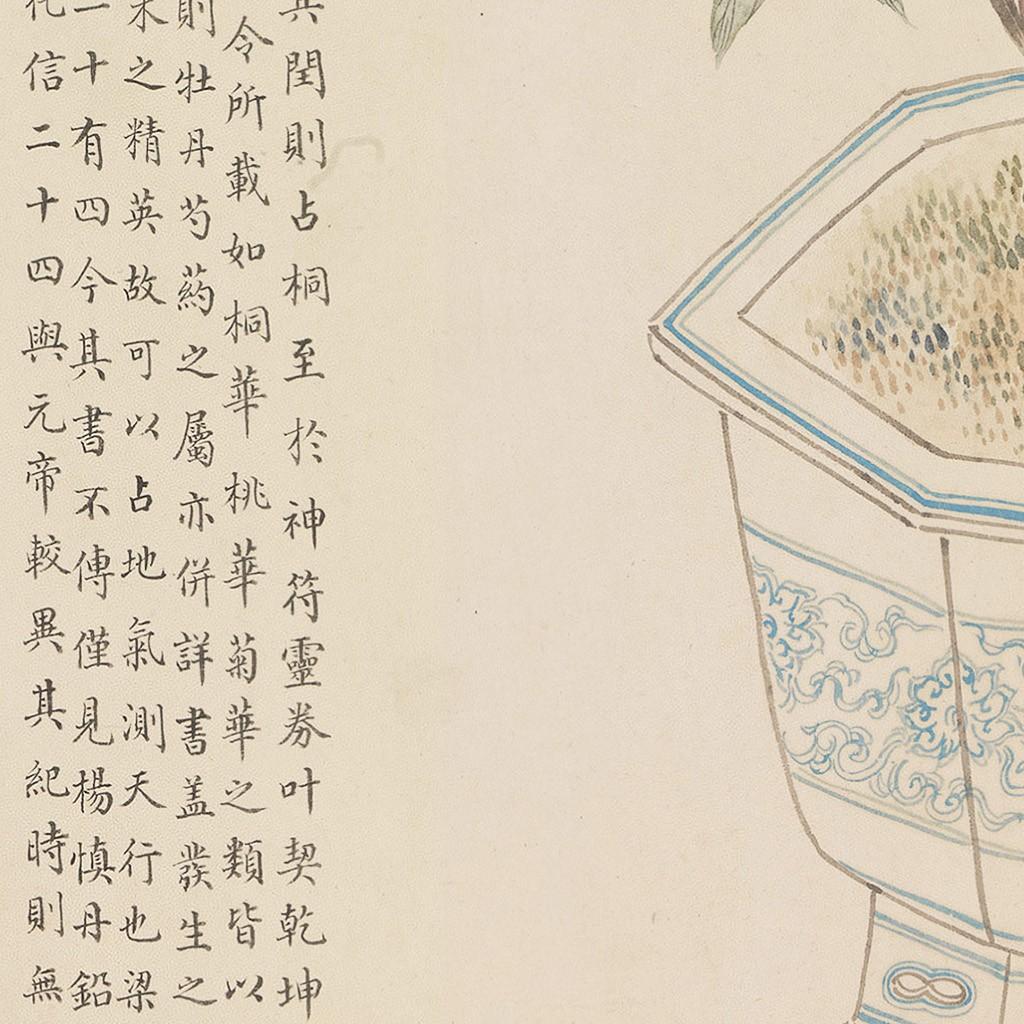 閏則占桐至於神符靈券叶契乾坤
令所載如桐華桃華菊華之類皆以
則牡丹芍葯之屬亦併詳書盖發生之
木之精英故可以占地氣測天行也梁
一十有四今其書不傳僅見楊慎丹鉛
花信二十四與元帝較異其紀時則無